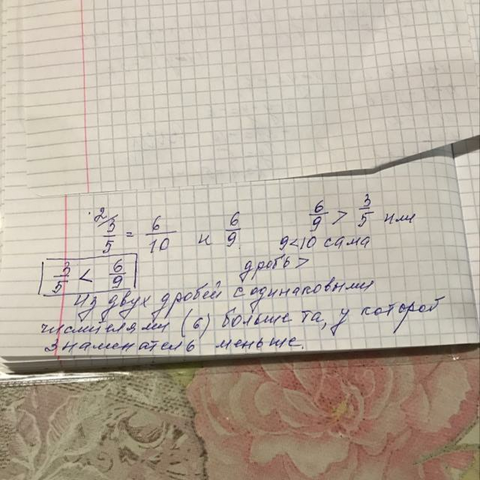 2/
3/5 = 6/10 и 6/9
6/9 > 3/5 или
9<10 сама
дробь >
3/5 < 6/9
Из двух дробей с одинаковыми
числителями (6) больше та, у которой
знаменатель меньше.